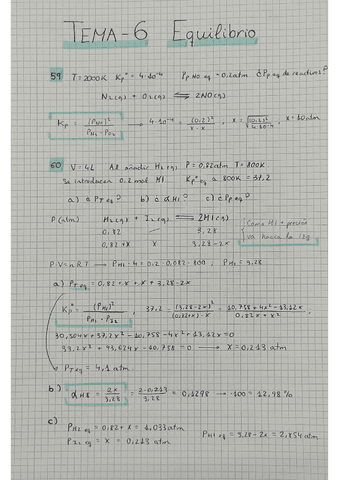 TEMA-6 Equilibrio
59 T=2000K Kp°= 4·10⁻⁴ P NO eq = 0.2atm ¿Pp eq de reactivos?
N₂(g) + O₂(g) ⇌ 2NO(g)
Kp = (P NO)² / P N₂ · P O₂ → 4·10⁻⁴ = (0.2)² / x · x , x = √(0.2)² / 4·10⁻⁴ , x = 10 atm
60 V = 4L Al añadir H₂(g) P = 0.82 atm T = 800K
Se introducen 0.2 mol HI Kp° eq a 800K = 37.2
a) ¿ P T eq ? b) ¿ α HI ? c) ¿ Pp eq ?
P (atm) H₂(g) + I₂(g) ⇌ 2HI(g)
0.82 — 3.28
0.82 + X X 3.28 - 2x
Como HI + presión
va hacia la izq
P V = n R T → P HI · 4 = 0.2 · 0.082 · 800 , P HI = 3.28
a) P T eq = 0.82 + x + x + 3.28 - 2x
Kp° = (P HI)² / P H₂ · P I₂ , 37.2 = (3.28 - 2x)² / (0.82+x) · x = 10.758 + 4x² - 13.12x / 0.82x + x²
30.504x + 37.2x² - 10.758 - 4x² + 13.12x = 0
33.2x² + 43.624x - 10.758 = 0 → X = 0.213 atm
P T eq = 4,1 atm
b) α HI = 2x / 3,28 = 2·0.213 / 3.28 = 0,1298 → ·100 = 12,98 %
c) P H₂ eq = 0.82 + x = 1,033 atm
P I₂ eq = X = 0,213 atm P HI eq = 3.28 - 2x = 2,854 atm